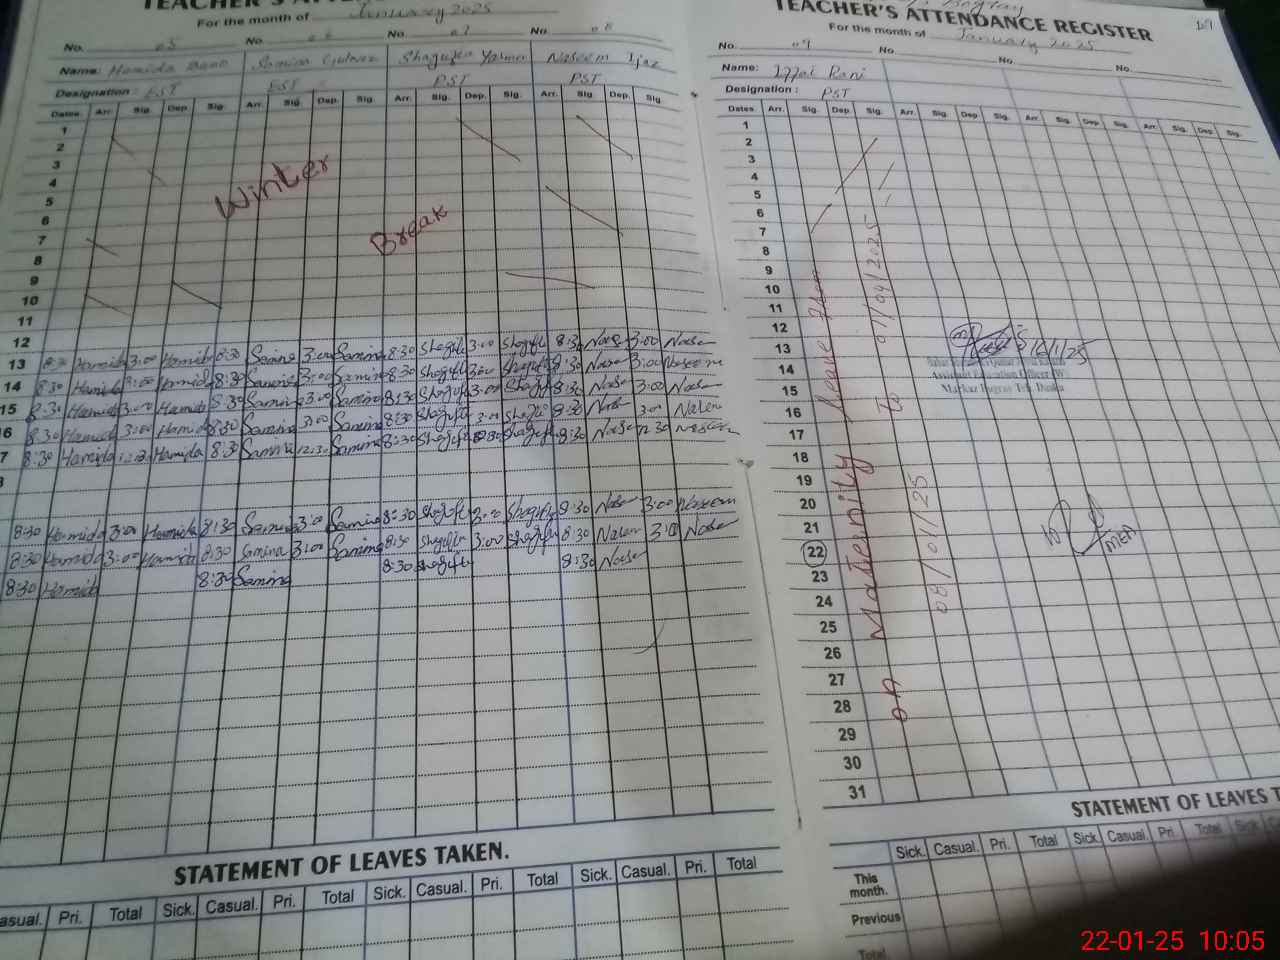 TEACHER'S ATTENDANCE REGISTER
For the month of January 2025
No. 05 No. 06 No. 07 No. 08
Name: Hamida Bano Samina Gulnaz Shagufta Yasmin Naseem Ijaz
Designation: EST EST PST PST
Dates. Arr. Sig. Dep. Sig. Arr. Sig. Dep. Sig. Arr. Sig. Dep. Sig. Arr. Sig. Dep. Sig.
1
2
3
4
5
6
7
8
9
10
11
12
Winter
Break
13 8:30 Hamida 3:00 Hamida 8:30 Samina 3:00 Samina 8:30 Shagufta 3:00 Shagufta 8:30 Naseem 3:00 Naseem
14 8:30 Hamida 3:00 Hamida 8:30 Samina 3:00 Samina 8:30 Shagufta 3:00 Shagufta 8:30 Naseem 3:00 Naseem
15 8:30 Hamida 3:00 Hamida 8:30 Samina 3:00 Samina 8:30 Shagufta 3:00 Shagufta 8:30 Naseem 3:00 Naseem
16 8:30 Hamida 3:00 Hamida 8:30 Samina 3:00 Samina 8:30 Shagufta 3:00 Shagufta 8:30 Naseem 3:00 Naseem
17 8:30 Hamida 12:30 Hamida 8:30 Samina 12:30 Samina 8:30 Shagufta 12:30 Shagufta 8:30 Naseem 12:30 Naseem
8:30 Hamida 3:00 Hamida 8:30 Samina 3:00 Samina 8:30 Shagufta 3:00 Shagufta 8:30 Naseem 3:00 Naseem
8:30 Hamida 3:00 Hamida 8:30 Samina 3:00 Samina 8:30 Shagufta 3:00 Shagufta 8:30 Naseem 3:00 Naseem
8:30 Hamida 8:30 Samina 8:30 Shagufta 8:30 Naseem
STATEMENT OF LEAVES TAKEN.
Casual. Pri. Total Sick. Casual. Pri. Total Sick. Casual. Pri. Total Sick. Casual. Pri. Total
TEACHER'S ATTENDANCE REGISTER
For the month of January 2025
No. 09 No. No. No.
Name: Rani
Designation: PST
Dates. Arr. Sig. Dep. Sig. Arr. Sig. Dep. Sig. Arr. Sig. Dep. Sig. Arr. Sig. Dep. Sig.
1
2
3
4
5
6
7
8
9
10
11
12
13
14
15
16
17
18
19
20
21
22
23
24
25
26
27
28
29
30
31
on Maternity leave from
08/01/25 To 07/04/2025
Assistant Education Officer (W)
MEA
STATEMENT OF LEAVES T
Sick. Casual. Pri. Total Sick. Casual. Pri. Total Sick.
This month.
Previous
Total
22-01-25 10:05